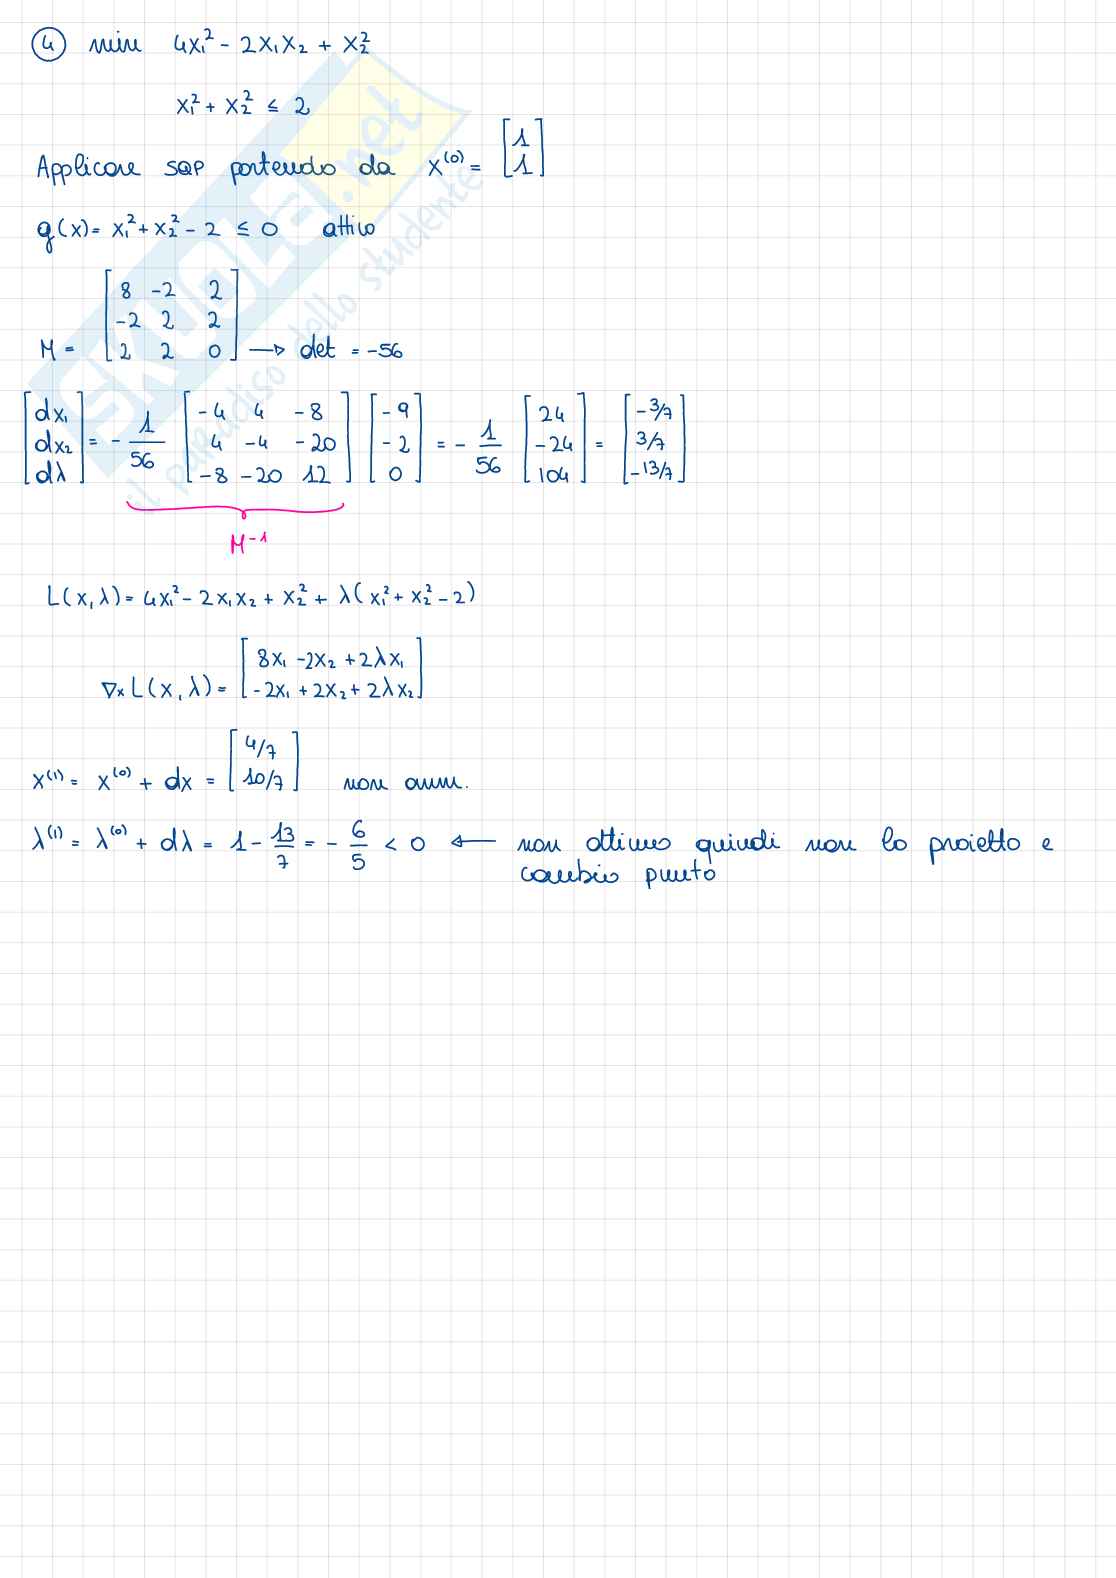 ④ min 4x₁² - 2x₁x₂ + x₂²
x₁² + x₂² ≤ 2
Applicare SQP partendo da x⁽⁰⁾ = [1 1]
g(x) = x₁² + x₂² - 2 ≤ 0 attivo
M = [8 -2 2; -2 2 2; 2 2 0] → det = -56
[dx₁; dx₂; dλ] = - 1/56 [-4 4 -8; 4 -4 -20; -8 -20 12] [-9; -2; 0] = - 1/56 [24; -24; 104] = [-3/7; 3/7; -13/7]
M⁻¹
L(x, λ) = 4x₁² - 2x₁x₂ + x₂² + λ(x₁² + x₂² - 2)
∇ₓL(x, λ) = [8x₁ - 2x₂ + 2λx₁; -2x₁ + 2x₂ + 2λx₂]
x⁽¹⁾ = x⁽⁰⁾ + dx = [4/7; 10/7] non amm.
λ⁽¹⁾ = λ⁽⁰⁾ + dλ = 1 - 13/7 = - 6/5 < 0 ← non ottimo quindi non lo proietto e
cambio punto
SKUOLA.net
il paradiso dello studente